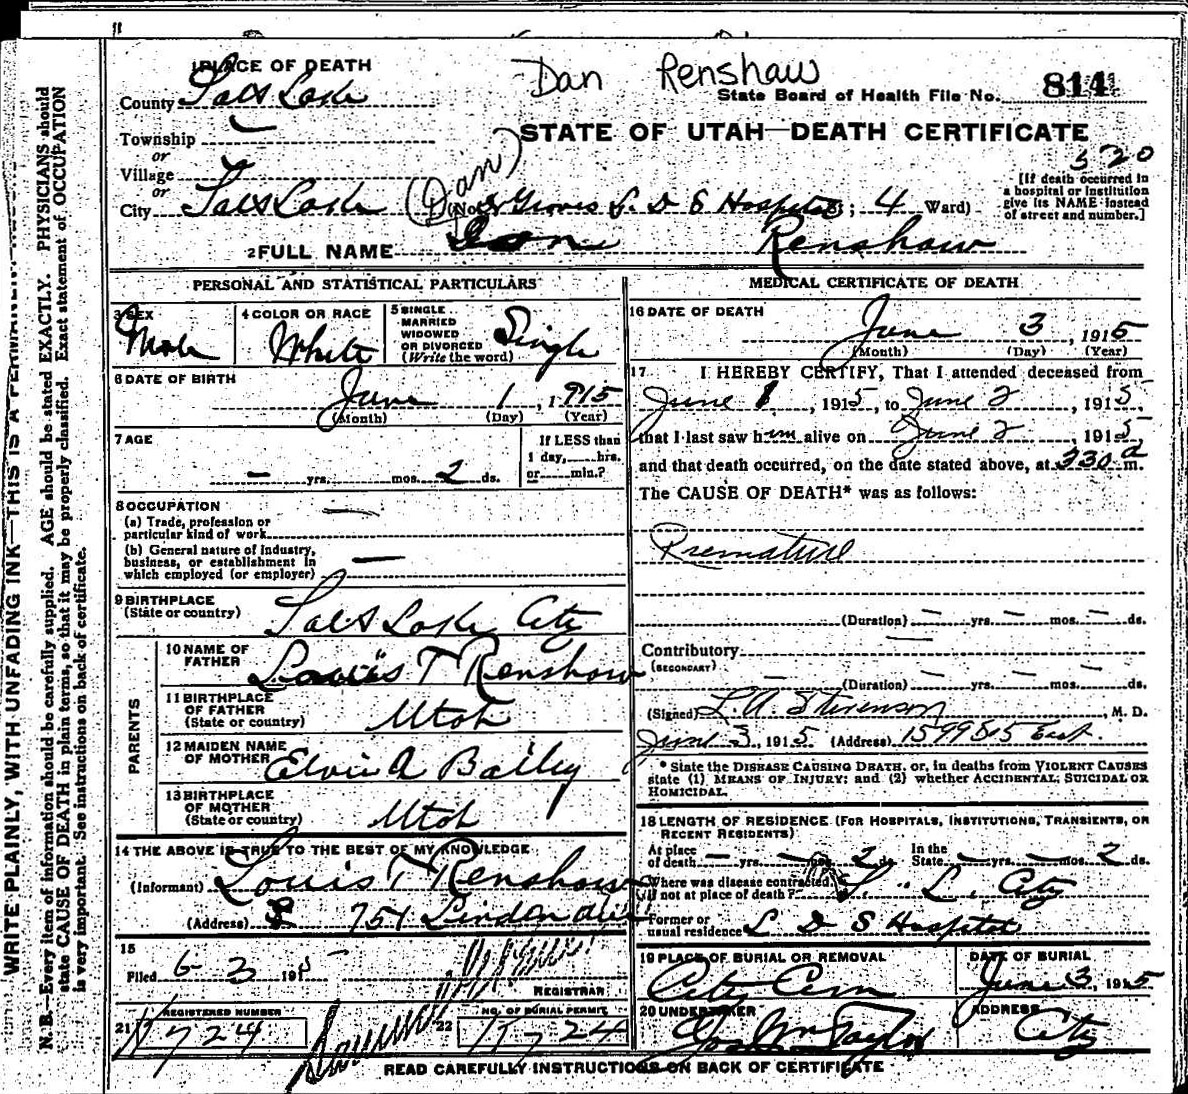 Dan Renshaw
1 PLACE OF DEATH
County Salt Lake
State Board of Health File No. 814
Township
or
Village
or
City Salt Lake
STATE OF UTAH—DEATH CERTIFICATE
520
(Dan)
(No. Groves L. D. S Hospital St; 4 Ward)
[If death occurred in a hospital or institution give its NAME instead of street and number.]
2 FULL NAME Don Renshaw
PERSONAL AND STATISTICAL PARTICULARS
3 SEX Male
4 COLOR OR RACE White
5 SINGLE MARRIED WIDOWED OR DIVORCED (Write the word) Single
6 DATE OF BIRTH June 1, 1915
(Month) (Day) (Year)
7 AGE — yrs. mos. 2 ds.
If LESS than 1 day, hrs. or min.?
8 OCCUPATION —
(a) Trade, profession or particular kind of work
(b) General nature of industry, business, or establishment in which employed (or employer) —
9 BIRTHPLACE (State or country) Salt Lake City
PARENTS
10 NAME OF FATHER Louis T Renshaw
11 BIRTHPLACE OF FATHER (State or country) Utah
12 MAIDEN NAME OF MOTHER Elvie A Bailey
13 BIRTHPLACE OF MOTHER (State or country) Utah
14 THE ABOVE IS TRUE TO THE BEST OF MY KNOWLEDGE
(Informant) Louis T Renshaw
(Address) 751 Linden Ave
15
Filed 6-3 1915
REGISTRAR
21 REGISTERED NUMBER K724
22 NO. OF BURIAL PERMIT K724
MEDICAL CERTIFICATE OF DEATH
16 DATE OF DEATH June 3, 1915
(Month) (Day) (Year)
17 I HEREBY CERTIFY, That I attended deceased from
June 1, 1915, to June 2, 1915,
that I last saw him alive on June 2, 1915,
and that death occurred, on the date stated above, at 330 a m.
The CAUSE OF DEATH* was as follows:
Premature
(Duration) — yrs. — mos. — ds.
Contributory —
(SECONDARY)
(Duration) — yrs. — mos. — ds.
(Signed) L. A. Stevenson, M. D.
June 3, 1915 (Address) 1599 S 15 East
* State the DISEASE CAUSING DEATH, or, in deaths from VIOLENT CAUSES state (1) MEANS OF INJURY; and (2) whether ACCIDENTAL, SUICIDAL OR HOMICIDAL.
18 LENGTH OF RESIDENCE (FOR HOSPITALS, INSTITUTIONS, TRANSIENTS, OR RECENT RESIDENTS)
At place of death — yrs. — mos. 2 ds. In the State — yrs. — mos. 2 ds.
Where was disease contracted, if not at place of death? S. L. City
Former or usual residence L D S Hospital
19 PLACE OF BURIAL OR REMOVAL City Cem
DATE OF BURIAL June 3, 1915
20 UNDERTAKER Jos Wm Taylor
ADDRESS City
READ CAREFULLY INSTRUCTIONS ON BACK OF CERTIFICATE
N. B.—Every item of information should be carefully supplied. AGE should be stated EXACTLY. PHYSICIANS should
state CAUSE OF DEATH in plain terms, so that it may be properly classified. Exact statement of OCCUPATION
is very important. See instructions on back of certificate.
WRITE PLAINLY, WITH UNFADING INK—THIS IS A PERMANENT